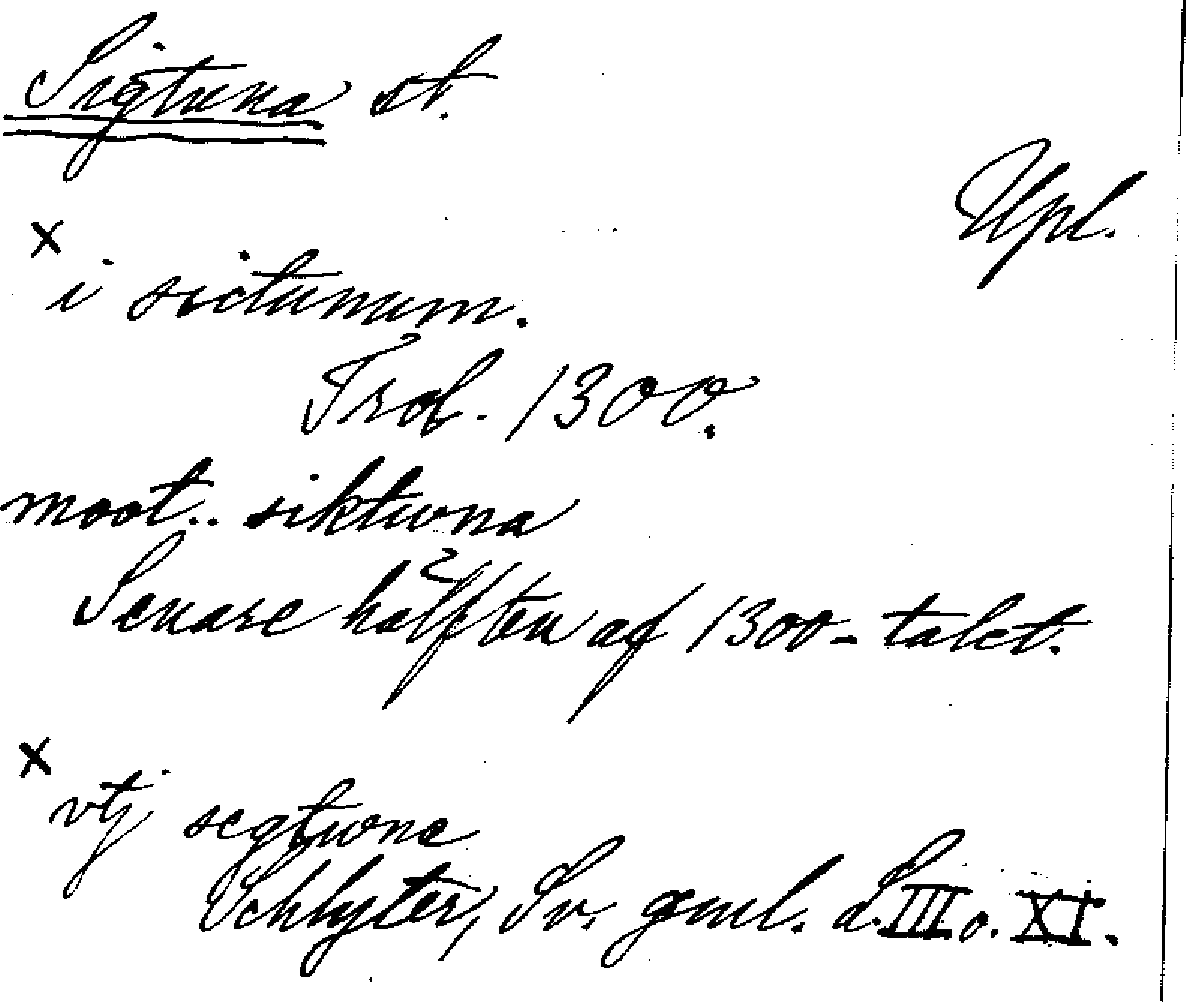 Sigtuna st.
Upl.
x
i sictunum.
Trol. 1300.
moot.. siktwna
Senare hälften af 1300-talet.
x
vtj segtwne
Schlyter, Sv. gml. L. III o. XI.